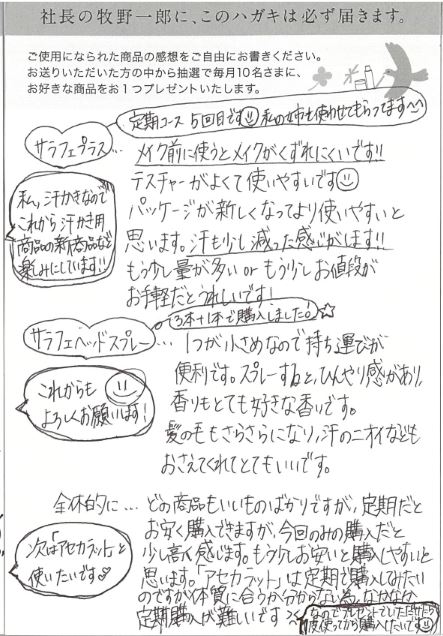 社長の牧野一郎に、このハガキは必ず届きます。
ご使用になられた商品の感想をご自由にお書きください。
お送りいただいた方の中から抽選で毎月10名さまに、
お好きな商品をお1つプレゼントいたします。
定期コース5回目です 私の姉も使わせてもらってます
サラフェプラス…
メイク前に使うとメイクがくずれにくいです!!
テスチャーがよくて使いやすいです
パッケージが新しくなってより使いやすいと
思います。汗も少し減った感じがします!!
もう少し量が多い or もう少しお値段が
お手軽だとうれしいです!
私、汗かきなので
これから汗かき用
商品の新商品など
楽しみにしています!!
3本+1本で購入しました。
サラフェヘッドスプレー…
1つが小さめなので持ち運びが
便利です。スプレーすると、ひんやり感があり、
香りもとても好きな香りです。
髪の毛もさらさらになり、汗のニオイなども
おさえてくれてとてもいいです。
これからも
よろしくお願いします!
全体的に…
どの商品もいいものばかりですが、定期だと
お安く購入できますが、今回のみの購入だと
少し高く感じます。もう少しお安いと購入しやすいと
思います。「アセカラット」は定期で購入してみたい
のですが体質に合うか分からない為、なかなか
定期購入が難しいです
次は「アセカラット」と
使いたいです
なのでプレゼントでいただけたら
度使ってから購入したいです